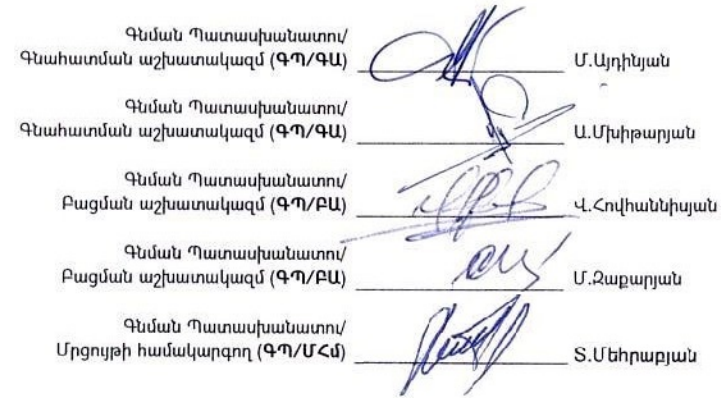 Գնման Պատասխանատու/
Գնահատման աշխատակազմ (ԳՊ/ԳԱ) Մ.Այդինյան
Գնման Պատասխանատու/
Գնահատման աշխատակազմ (ԳՊ/ԳԱ) Ա.Մխիթարյան
Գնման Պատասխանատու/
Բացման աշխատակազմ (ԳՊ/ԲԱ) Վ.Հովհաննիսյան
Գնման Պատասխանատու/
Բացման աշխատակազմ (ԳՊ/ԲԱ) Մ.Զաքարյան
Գնման Պատասխանատու/
Մրցույթի համակարգող (ԳՊ/ՄՀմ) Տ.Մեհրաբյան